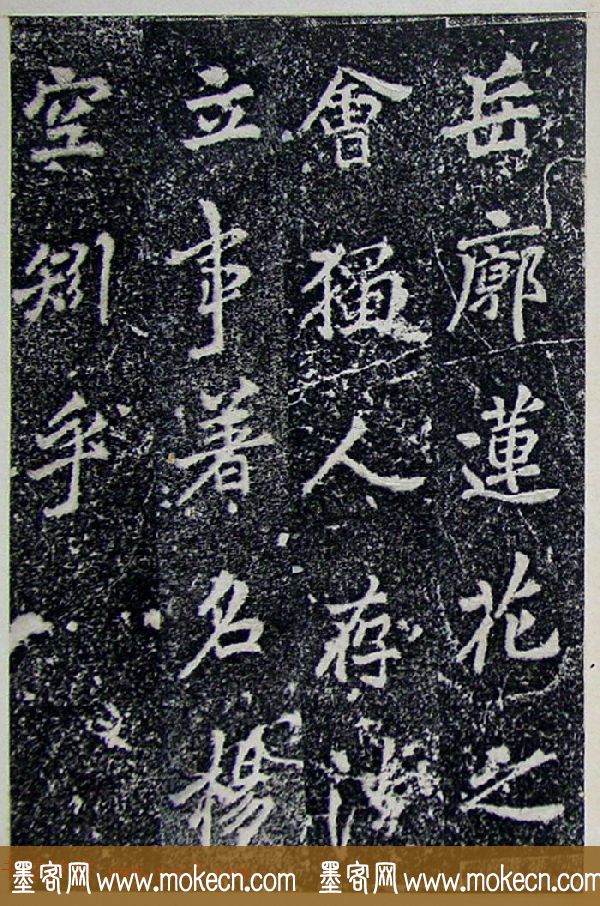 岳廓蓮花之
會獨人存法
立事著名楊
空矧乎
墨客网 www.mokecn.com 墨客网 www.mokecn.com